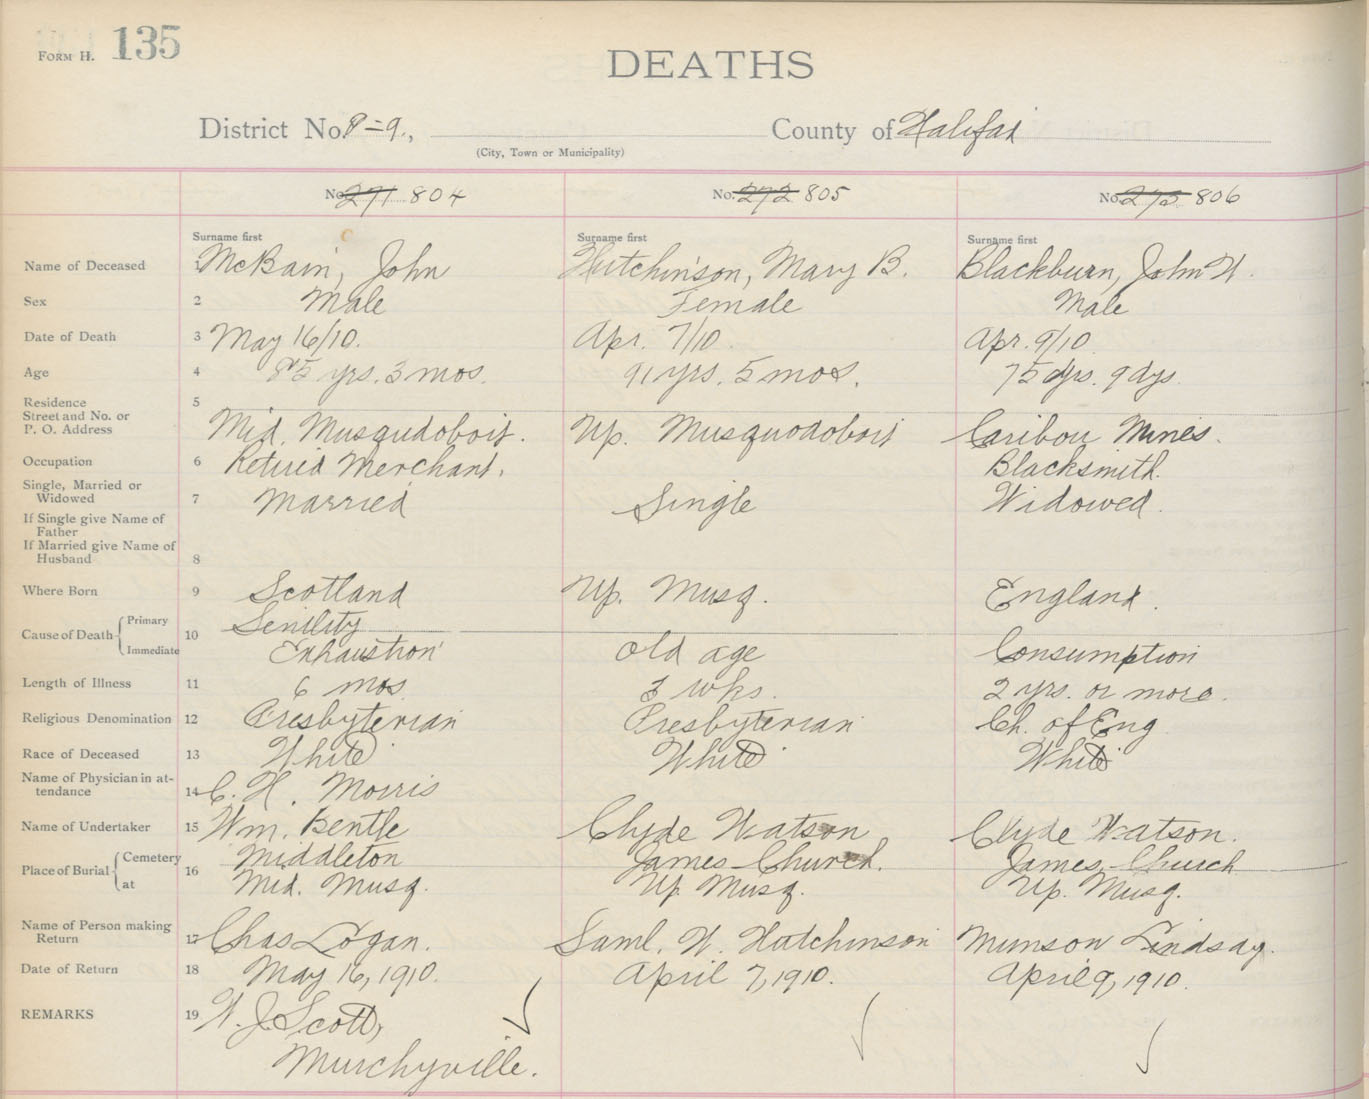 FORM H. 135
DEATHS
District No. 8=9., County of Halifax
(City, Town or Municipality)
No. 271 804 No. 272 805 No. 273 806
Surname first Surname first Surname first
Name of Deceased 1 McBain, John Hutchinson, Mary B. Blackburn, John W.
Sex 2 Male Female Male
Date of Death 3 May 16/10. Apr. 7/10. Apr. 9/10
Age 4 85 yrs. 3 mos. 91 yrs. 5 mos. 75 yrs. 9 dys.
Residence 5
Street and No. or
P. O. Address Mid. Musqudoboit. Up. Musquodoboit Caribou Mines.
Occupation 6 Retired Merchant. Blacksmith.
Single, Married or
Widowed 7 Married Single Widowed.
If Single give Name of
Father
If Married give Name of
Husband 8
Where Born 9 Scotland Up. Musq. England.
Cause of Death Primary 10 Senility
Immediate Exhaustion Old age Consumption
Length of Illness 11 6 mos. wks. 2 yrs. or more.
Religious Denomination 12 Presbyterian Presbyterian Ch. of Eng
Race of Deceased 13 White White White
Name of Physician in at-
tendance 14 C. H. Morris
Name of Undertaker 15 Wm. Bentle Clyde Watson Clyde Watson.
Place of Burial Cemetery 16 Middleton James-Church. James-Church
at Mid. Musq. Up Musq. Up. Musq.
Name of Person making
Return 17 Chas Logan. Saml. W. Hutchinson Munson Lindsay.
Date of Return 18 May 16, 1910. April 7, 1910. April 9, 1910.
REMARKS 19 W. J. Scott,
Murchyville.